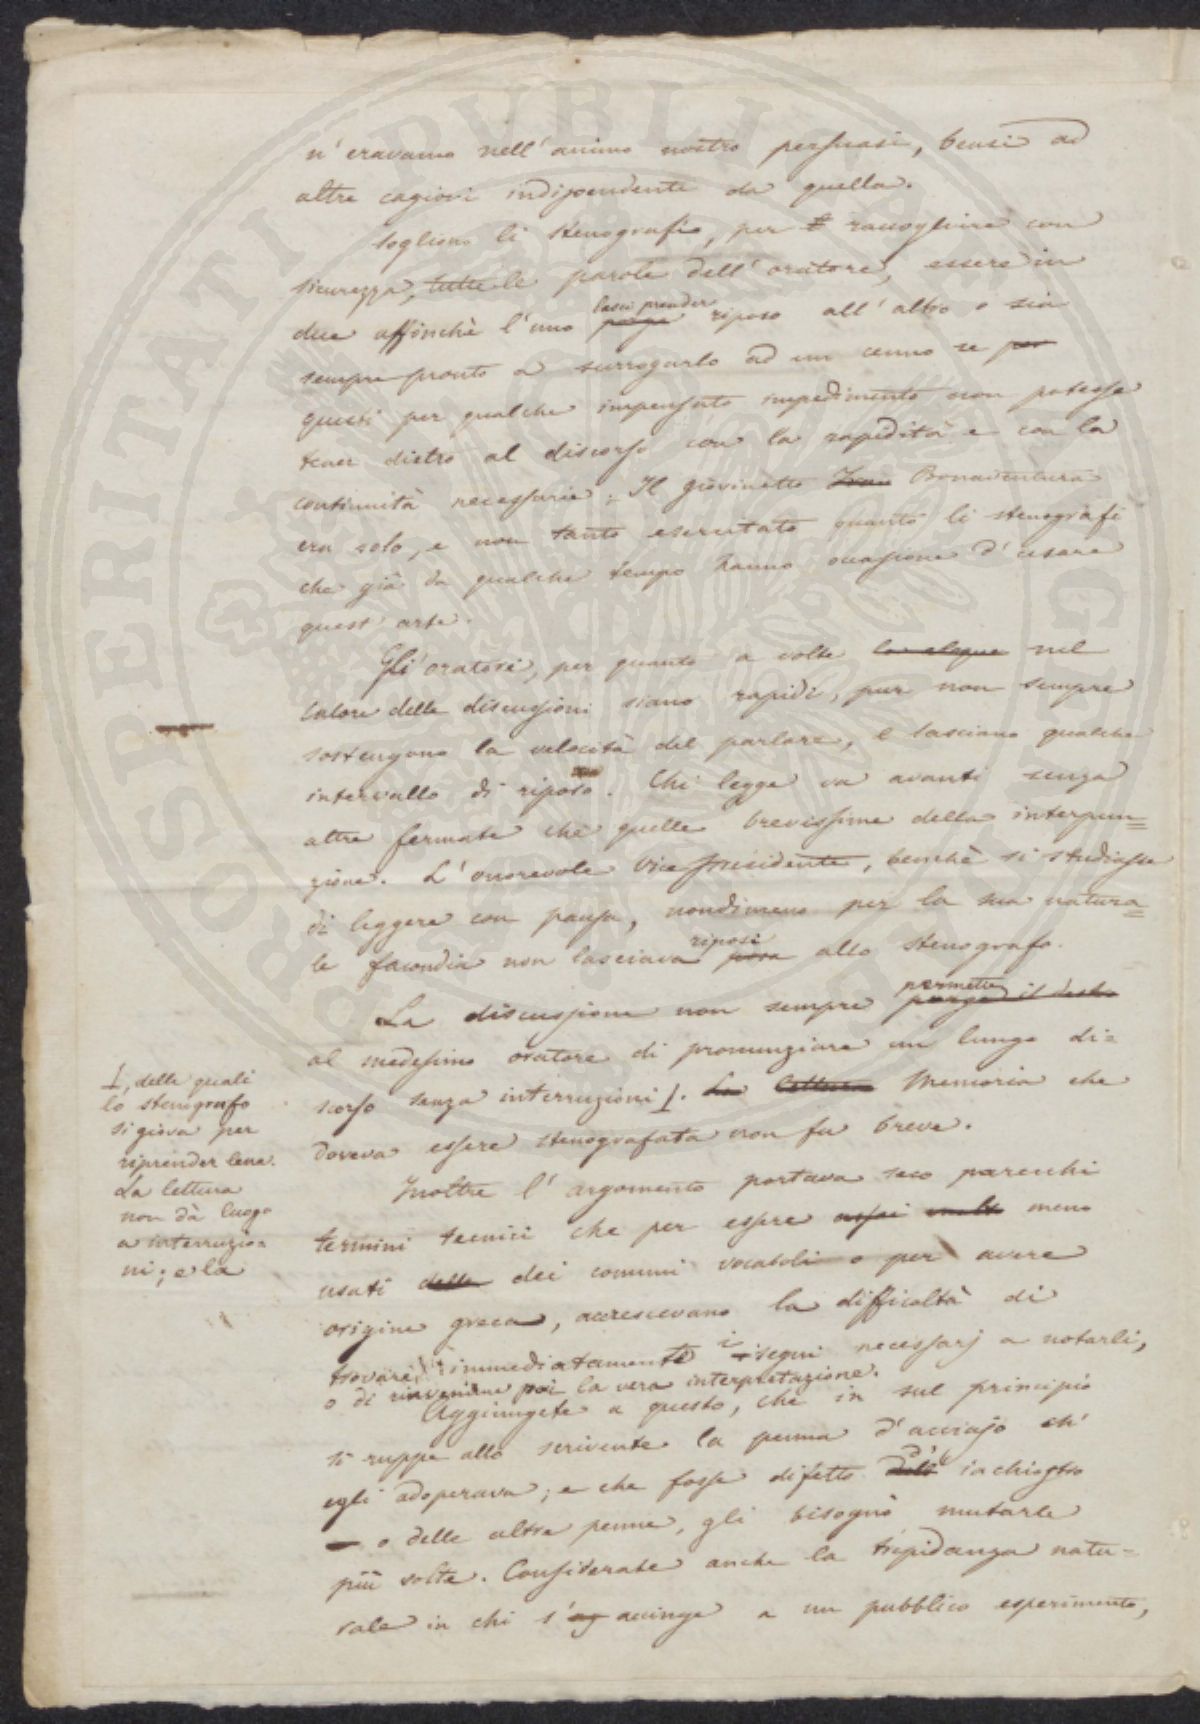 n'eravamo nell'animo nostro persuasi, bensì ad
altre cagioni indipendenti da quella.
Sogliono li stenografi, per raccogliere con
sicurezza, tutte le parole dell'oratore, essere in
due affinchè l'uno porga lasci prender riposo all'altro o sia
sempre pronto a surrogarlo ad un cenno se per
questi per qualche impensato impedimento non potesse
tener dietro al discorso con la rapidità e con la
continuità necessarie. Il giovinetto Bonaventura
era solo, e non tanto esercitato quanto li stenografi
che già da qualche tempo hanno occasione d'usare
quest'arte.
Gli oratori, per quanto a volte nel
calore delle discussioni siano rapidi, pur non sempre
sostengono la velocità del parlare, e lasciano qualche
intervallo di riposo. Chi legge va avanti senza
altre fermate che quelle brevissime della interpun=
zione. L'onorevole Vice Presidente, benchè si studiasse
di leggere con pausa, nondimeno per la sua natura=
le facondia non lasciava posa riposi allo stenografo.
La discussione non sempre porge il destro permette
al medesimo oratore di pronunziare un lungo di=
scorso senza interruzioni. La lettura Memoria che
doveva essere stenografata non fu breve.
, delle quali
lo stenografo
si giova per
riprender lena.
La lettura
non dà luogo
a interruzio=
ni; e la
Inoltre l'argomento portava seco parecchi
termini tecnici che per essere assai molto meno
usati delle dei comuni vocaboli o per avere
origine greca, accrescevano la difficoltà di
trovare immediatamente i segni necessarj a notarli,
o di rinvenirne poi la vera interpretazione.
Aggiungete a questo, che in sul principio
si ruppe allo scrivente la penna d'acciajo ch'
egli adoperava; e che fosse difetto dell' d' inchiostro
o delle altre penne, gli bisognò mutarle
più volte. Considerate anche la trepidanza natu=
rale in chi s'accinge a un pubblico esperimento,